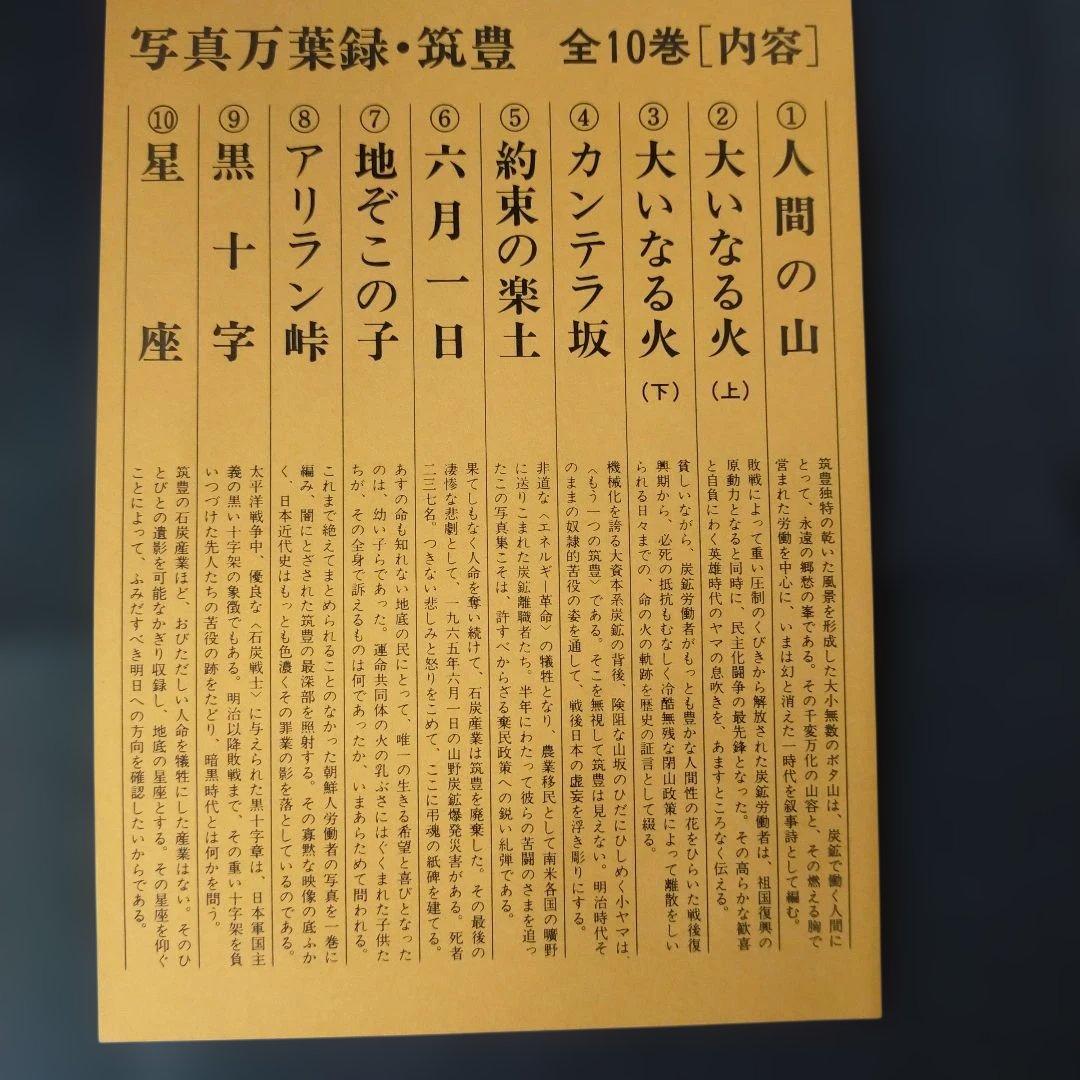 写真万葉録・筑豊 全10巻［内容］
①人間の山
筑豊独特の乾いた風景を形成した大小無数のボタ山は、炭鉱で働く人間に
とって、永遠の郷愁の峯である。その千変万化の山容と、その燃える胸で
営まれた労働を中心に、いまは幻と消えた一時代を叙事詩として編む。
②大いなる火（上）
敗戦によって重い圧制のくびきから解放された炭鉱労働者は、祖国復興の
原動力となると同時に、民主化闘争の最先鋒となった。その高らかな歓喜
と自負にわく英雄時代のヤマの息吹きを、あますところなく伝える。
③大いなる火（下）
貧しいながら、炭鉱労働者がもっとも豊かな人間性の花をひらいた戦後復
興期から、必死の抵抗もむなしく冷酷無残な閉山政策によって離散をしい
られる日々までの、命の火の軌跡を歴史の証言として綴る。
④カンテラ坂
機械化を誇る大資本系炭鉱の背後、険阻な山坂のひだにひしめく小ヤマは、
〈もう一つの筑豊〉である。そこを無視して筑豊は見えない。明治時代そ
のままの奴隷的苦役の姿を通して、戦後日本の虚妄を浮き彫りにする。
⑤約束の楽土
非道な〈エネルギー革命〉の犠牲となり、農業移民として南米各国の曠野
に送りこまれた炭鉱離職者たち。半年にわたって彼らの苦闘のさまを追っ
たこの写真集こそは、許すべからざる棄民政策への鋭い糾弾である。
⑥六月一日
果てしもなく人命を奪い続けて、石炭産業は筑豊を廃棄した。その最後の
凄惨な悲劇として、一九六五年六月一日の山野炭鉱爆発災害がある。死者
二三七名。つきない悲しみと怒りをこめて、ここに弔魂の紙碑を建てる。
⑦地ぞこの子
あすの命も知れない地底の民にとって、唯一の生きる希望と喜びとなった
のは、幼い子らであった。運命共同体の火の乳ぶさにはぐくまれた子供た
ちが、その全身で訴えるものは何であったか、いまあらためて問われる。
⑧アリラン峠
これまで絶えてまとめられることのなかった朝鮮人労働者の写真を一巻に
編み、闇にとざされた筑豊の最深部を照射する。その寡黙な映像の底ふか
く、日本近代史はもっとも色濃くその罪業の影を落としているのである。
⑨黒十字
太平洋戦争中、優良な〈石炭戦士〉に与えられた黒十字章は、日本軍国主
義の黒い十字架の象徴でもある。明治以降敗戦まで、その重い十字架を負
いつづけた先人たちの苦役の跡をたどり、暗黒時代とは何かを問う。
⑩星座
筑豊の石炭産業ほど、おびただしい人命を犠牲にした産業はない。そのひ
とびとの遺影を可能なかぎり収録し、地底の星座とする。その星座を仰ぐ
ことによって、ふみだすべき明日への方向を確認したいからである。